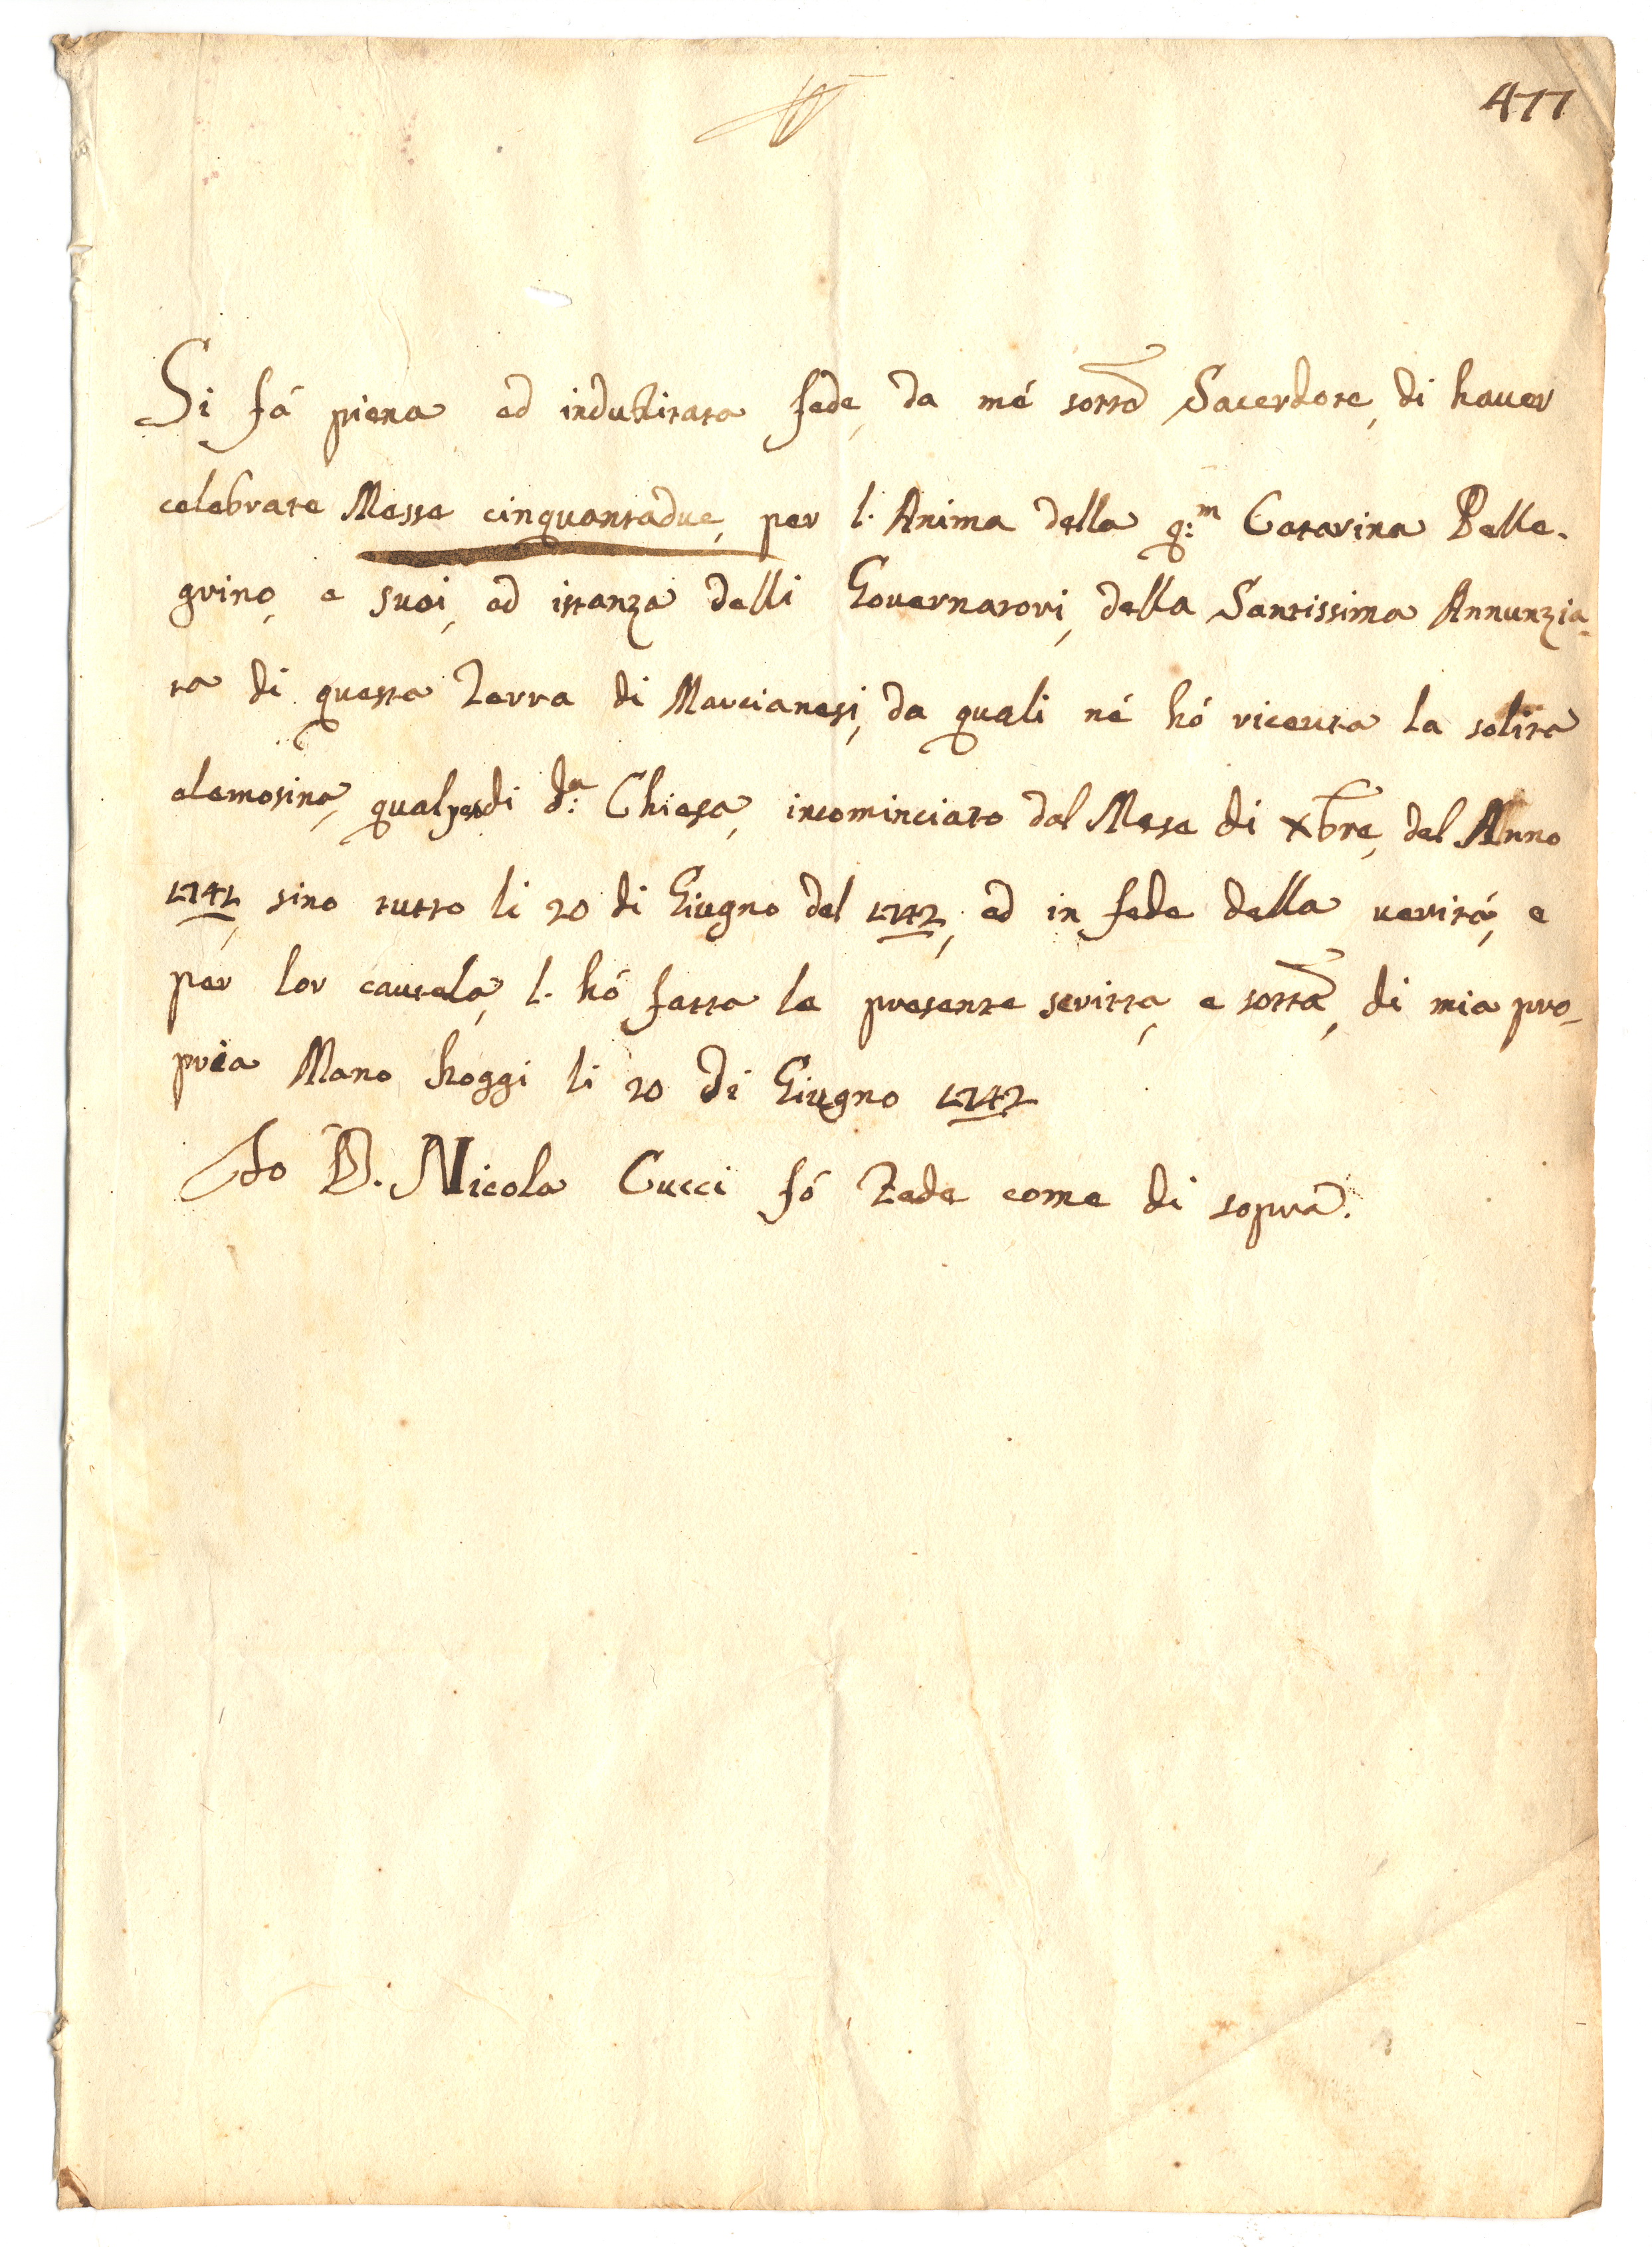 477
Si fá piena ed indubitata fede, da mé sotto Sacerdote, di haver
celebrate Messe cinquantadue, per l. Anima della q:m Catarina Pelle-
grino, e suoi, ad istanza delli Governatori, della Santissima Annunzia-
ta di questa Terra di Marcianesi, da quali né hó riceuta la solita
elemosina, di d:a Chiesa, incominciato dal Mese di xbre, del Anno
1741, sino tutto li 20 di Giugno del 1742, ed in fede della veritá, e
per lor cautela, l. hó fatta la presente scritta, e sotta, di mia pro-
pria Mano, hoggi li 20 di Giugno 1742
Io D. Nicola Cucci fó Fede come di sopra.